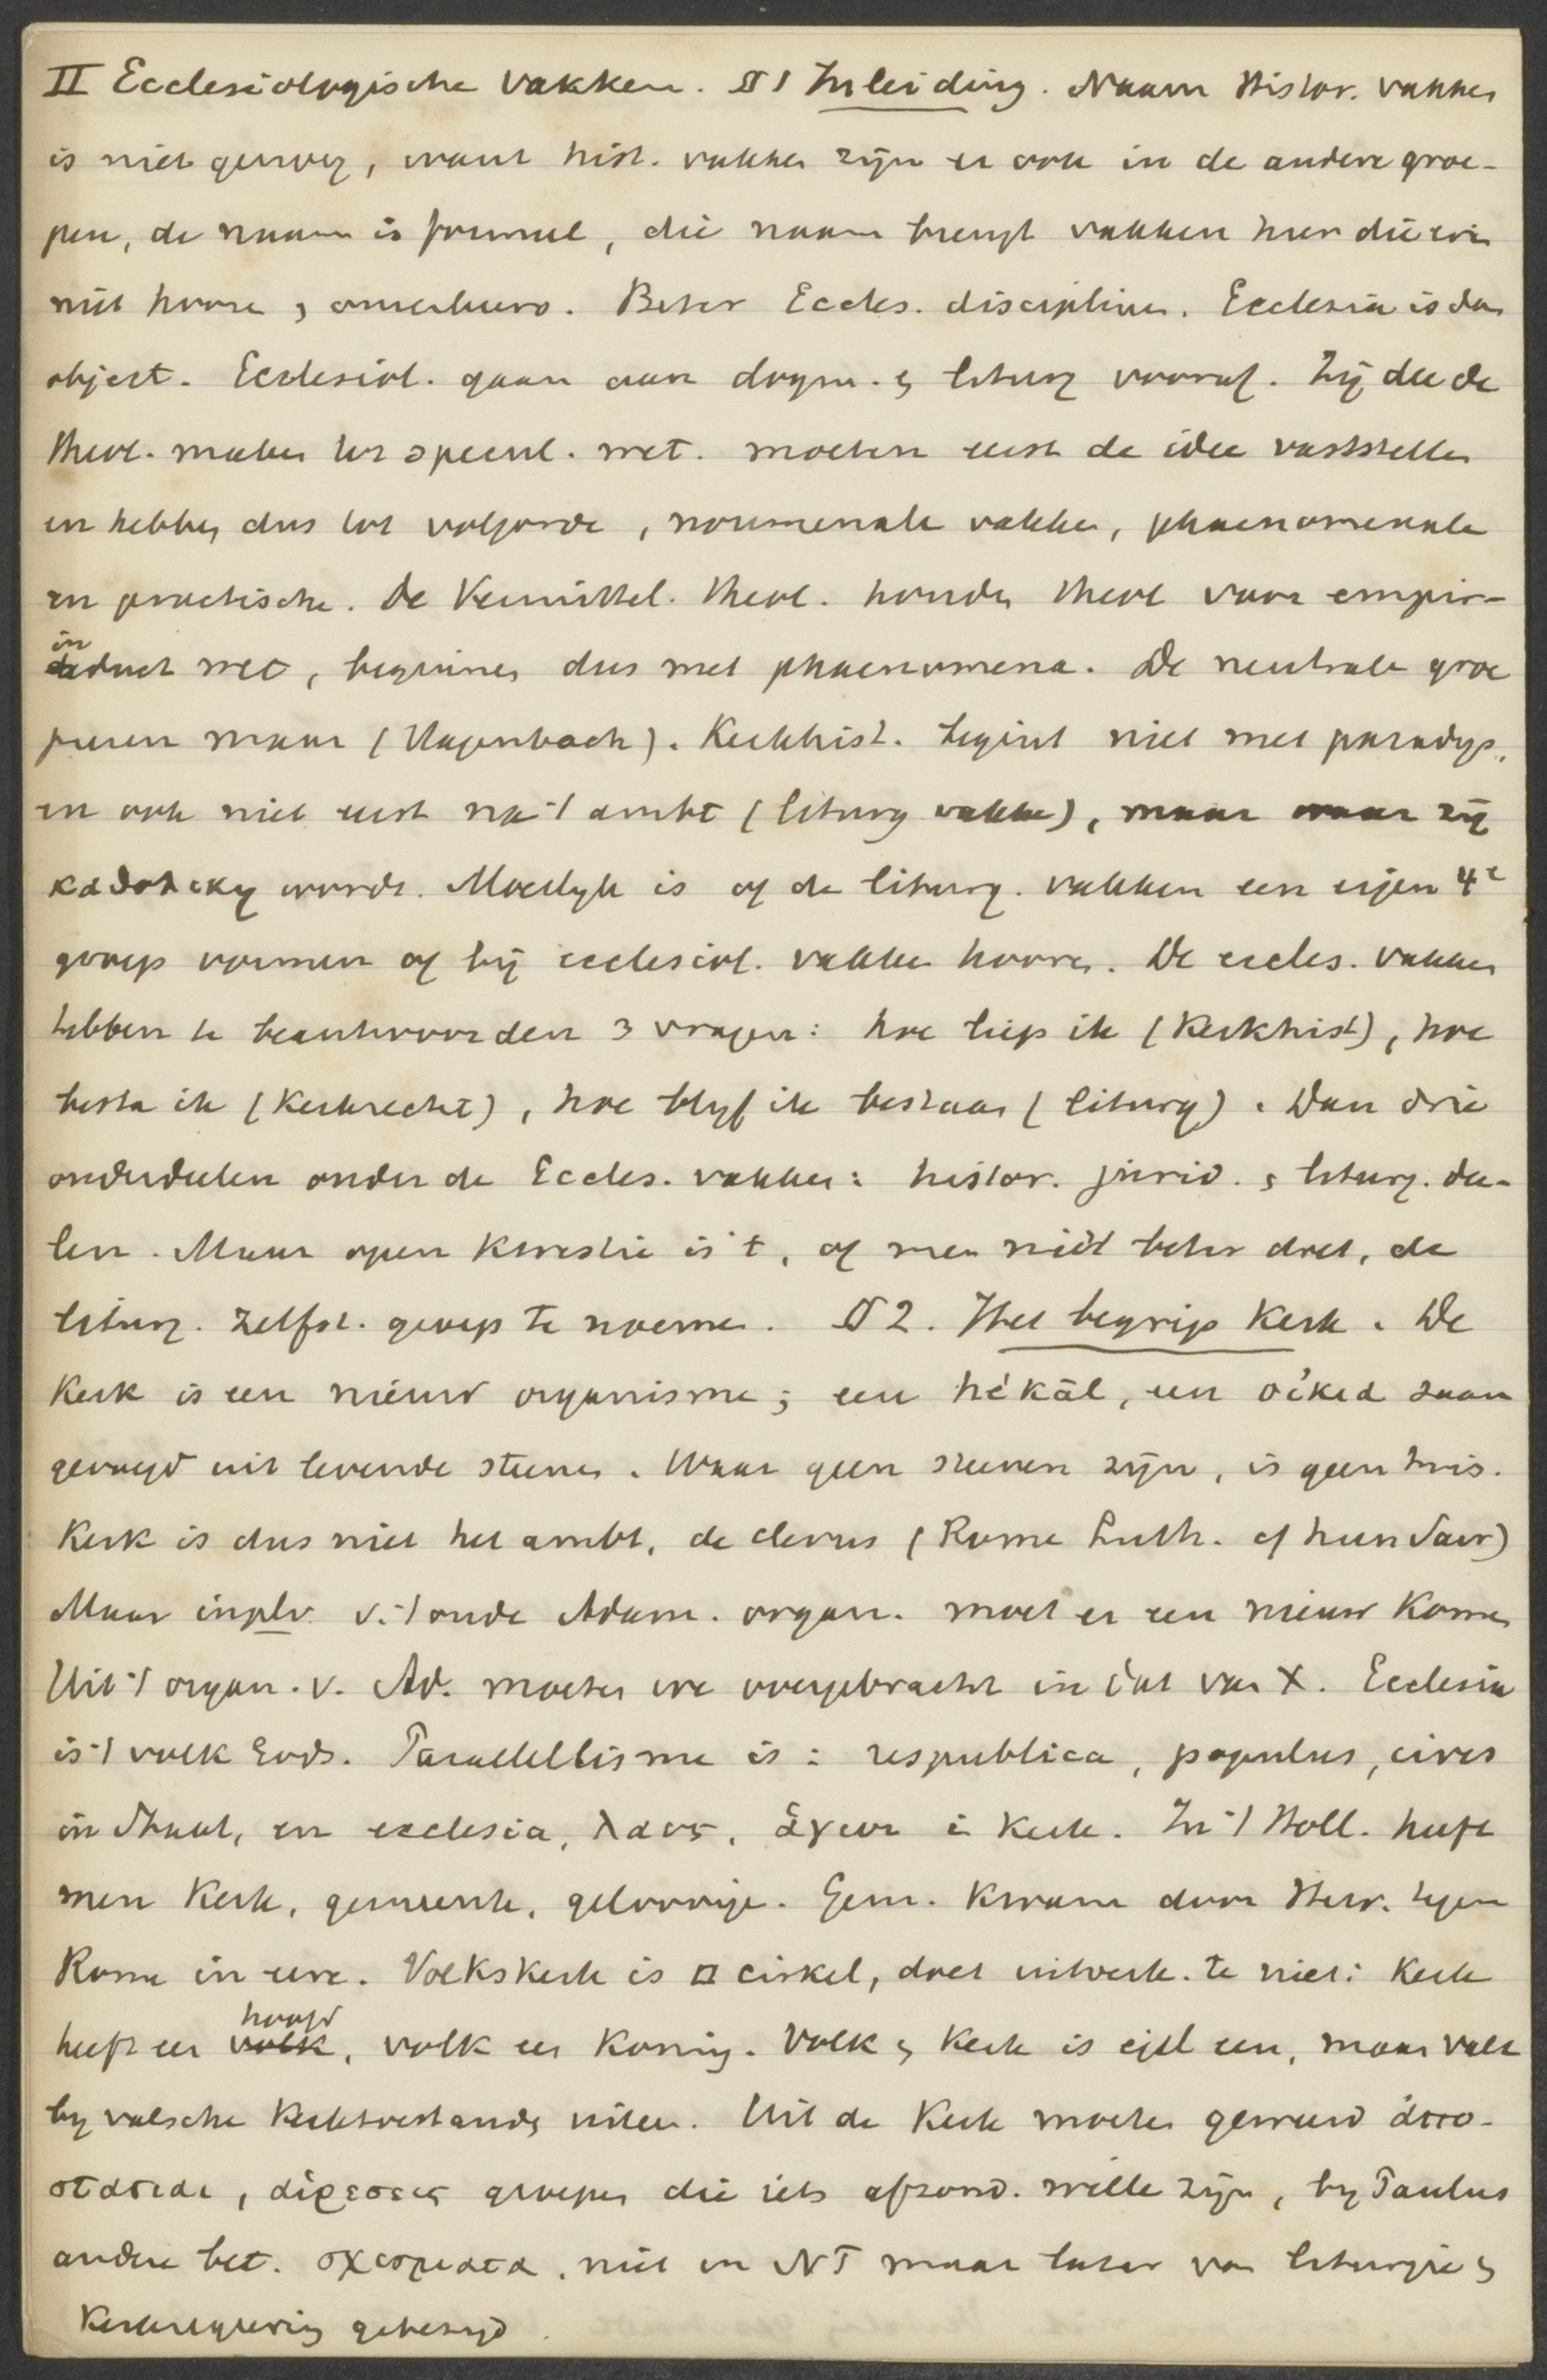 II Ecclesiologische vakken. § 1 Inleiding. Naam Histor. vakken
is niet genoeg, want hist. vakken zijn er ook in de andere groe-
pen, de naam is formeel, die naam brengt vakken hier die er in
niet hooren & omverkeerd. Beter Eccles. disciplinen. Ecclesia is dan
object. Ecclesiol. gaan aan dogm. & liturg vooraf. Zij die de
theol. maken tot specul. wet. moeten eerst de idee vaststellen
en hebben dus tot volgorde, noumenale vakken, phaenomenale
en practische. De Vermittel. theol. houden theol voor empir-
induct wet, beginnen dus met phaenomena. De neutrale groe
peeren maar (Hagenbach). Kerkhist. begint niet met paradijs,
en ook niet eerst na 't ambt (liturg vakken), maar waar zij
καθολικη wordt. Moeilyk is of de liturg. vakken een eigen 4e
groep vormen of bij ecclesiol. vakken hooren. De eccles. vakken
hebben te beantwoorden 3 vragen: hoe liep ik (Kerkhist), hoe
besta ik (Kerkrecht), hoe blyf ik bestaan (liturg). Dan drie
onderdeelen onder de Eccles. vakken: histor. jurid. & liturg. dee-
len. Maar open kwestie is 't, of men niet beter doet, de
liturg. zelfst. groep te noemen. § 2. Het begrip Kerk. De
Kerk is een nieuw organisme; een hêkāl, een οἰκια zaam
gevoegd uit levende steenen. Waar geen steenen zijn, is geen huis.
Kerk is dus niet het ambt, de clerus (Rome Luth. of hun Savr)
Maar in plr v. 't oude Adam. organ. moet er een nieuw komen
Uit 't organ. v. Ad. moeten we overgebracht in dat van X. Ecclesia
is 't volk Gods. Parallellisme is: respublica, populus, cives
in Staat, en ecclesia, λαος, ἁγιοι in Kerk. In 't Holl. heeft
men Kerk, gemeente, geloovige. Gem. kwam door Herv. tegen
Rome in eere. Volkskerk is □ cirkel, doet uitverk. te niet: Kerk
heeft een volk hoofd, volk een Koning. Volk & Kerk is eigl een, maar valt
by valsche Kerktoestanden uiteen. Uit de Kerk moeten geweerd ἀπο-
στασιαι, αἱρεσεις groepen die iets afzond. wille zijn, by Paulus
andere bet. σχισματα, niet in NT maar later van liturgie &
Kerkregeering gebezigd.